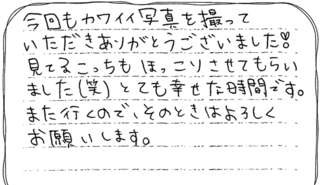 今回もカワイイ写真を撮って
いただきありがとうございました!
見てるこっちもほっこりさせてもらい
ました(笑)とても幸せな時間です。
また行くので、そのときはよろしく
お願いします。